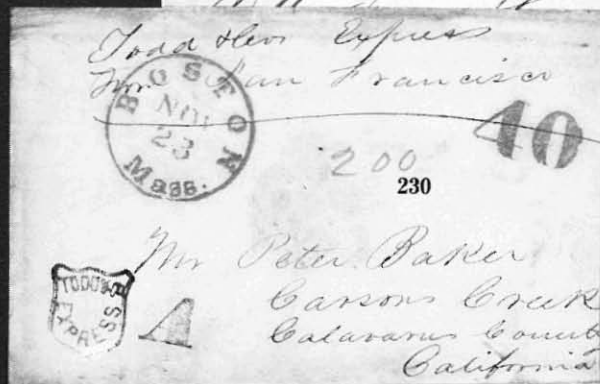 Todd & Co's Express
from San Francisco
BOSTON
NOV
23
Mass.
40
200
230
Mr Peter Baker
Carsons Creek
Calaveras County
California
TODD'S
EXPRESS
A